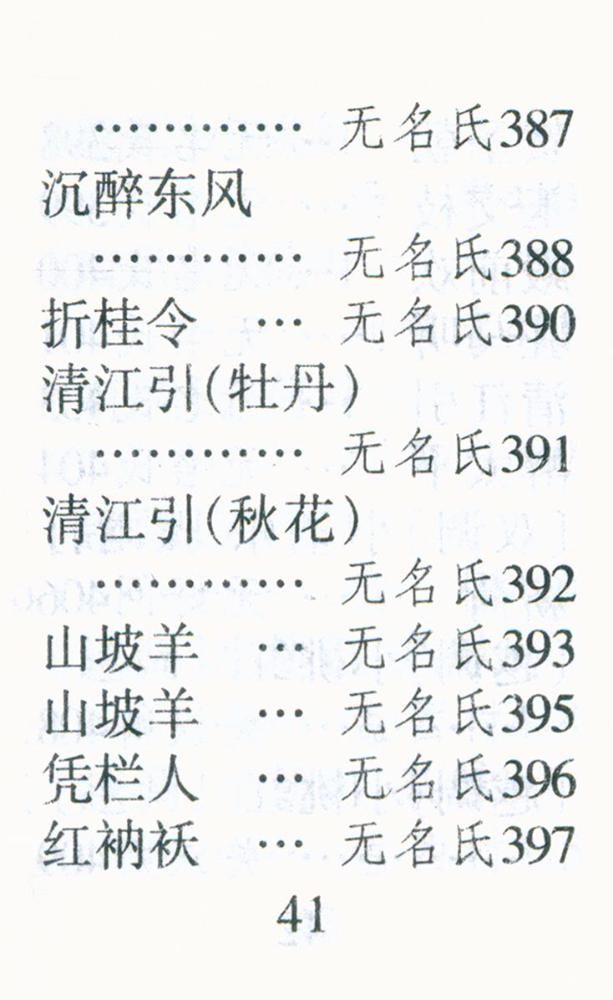 ………… 无名氏387
沉醉东风
………… 无名氏388
折桂令 … 无名氏390
清江引(牡丹)
………… 无名氏391
清江引(秋花)
………… 无名氏392
山坡羊 … 无名氏393
山坡羊 … 无名氏395
凭栏人 … 无名氏396
红衲袄 … 无名氏397
41